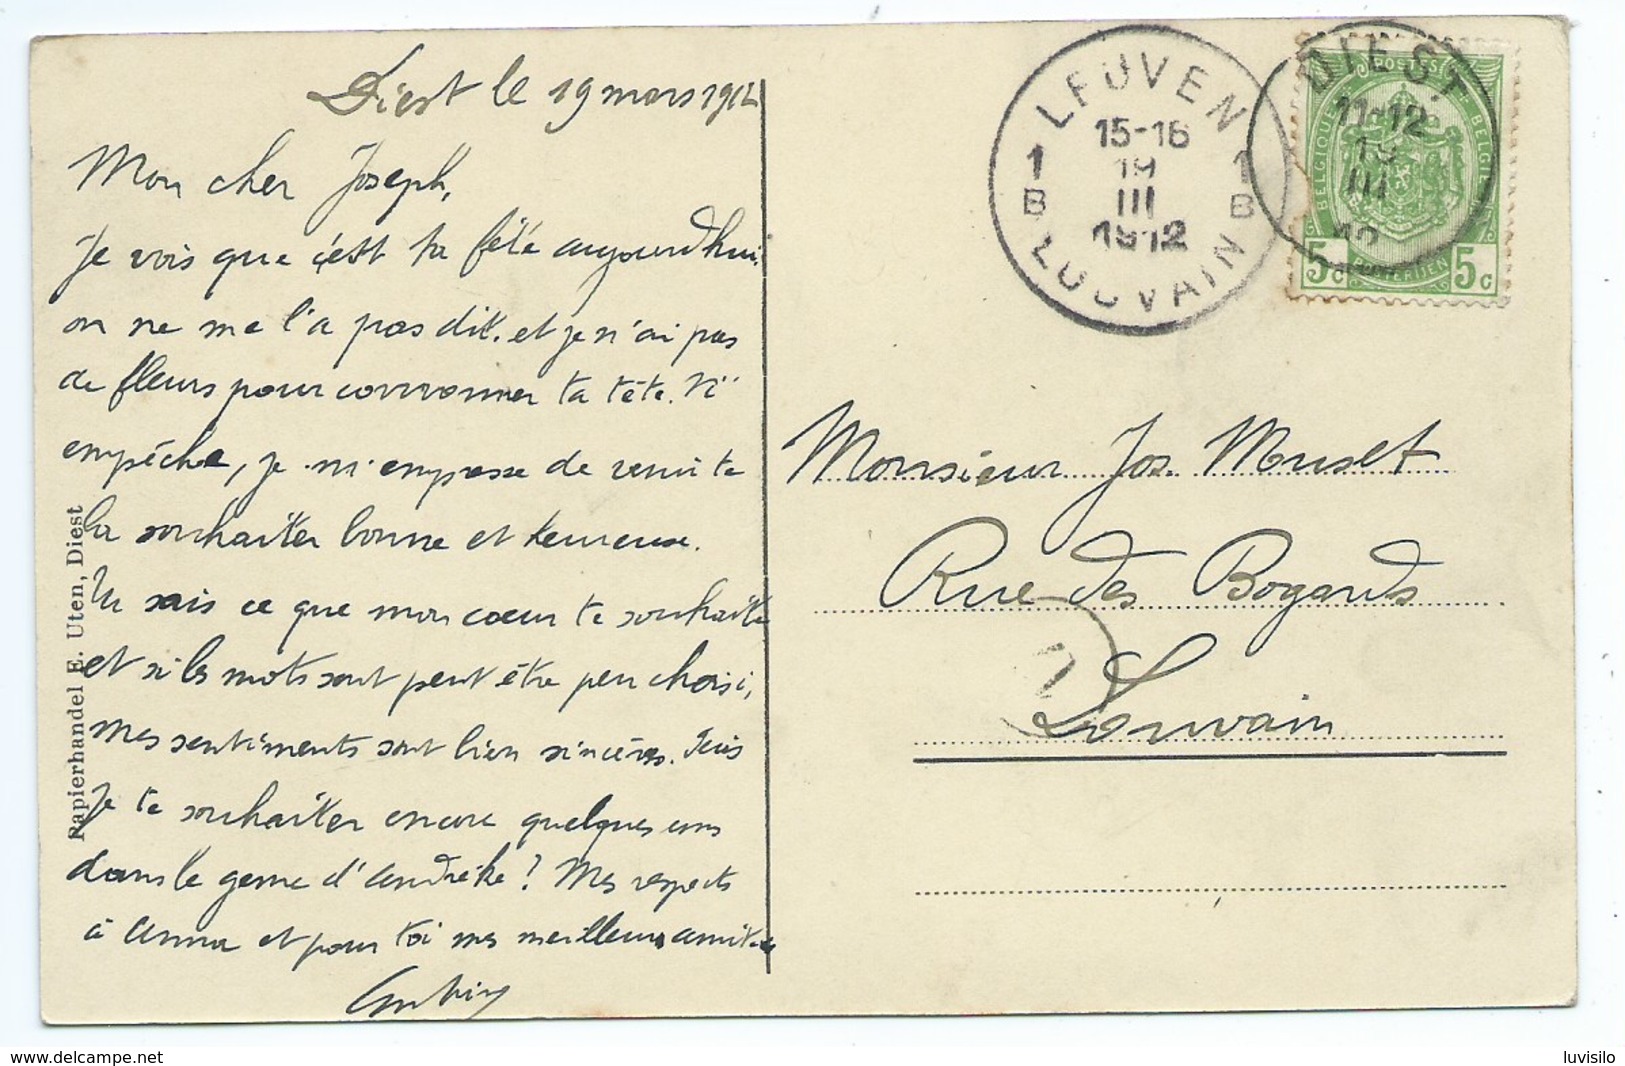 Diest le 19 mars 1912
Mon cher Joseph,
Je vois que c'est ta fête aujourd'hui.
on ne me l'a pas dit. et je n'ai pas
de fleurs pour couronner ta tête. N'
empêche, je m'empresse de venir te
la souhaiter bonne et heureuse.
Tu sais ce que mon cœur te souhaite
et si les mots sont peut être peu choisi,
mes sentiments sont bien sincères. Puis
je te souhaiter encore quelques uns
dans le genre d'Andréke? Mes respects
à Anna et pour toi mes meilleurs amitiés
Papierhandel E. Uten, Diest
LEUVEN
15-16
1 19 1
B III B
1912
LOUVAIN
DIEST
11-12
19
III
12
POSTES
BELGIQUE
BELGIE
5c POSTERIJEN 5c
Monsieur Jos Muset
Rue des Bogards
Louvain
delcampe.net
luvisilo